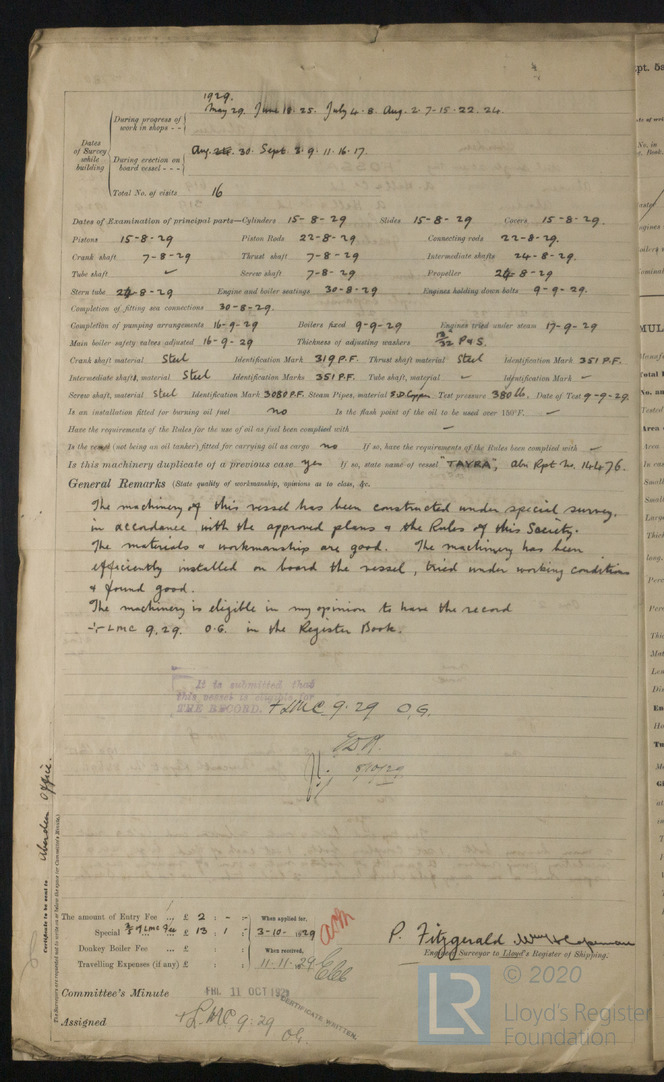 1929.
During progress of work in shops - - May 29. June 10. 25. July 4. 8. Aug. 2. 7. 15. 22. 24.
Dates of Survey while building
During erection on board vessel - - - Aug. 30. Sept. 3. 9. 11. 16. 17.
Total No. of visits 16
Dates of Examination of principal parts—Cylinders 15-8-29 Slides 15-8-29 Covers 15-8-29.
Pistons 15-8-29 Piston Rods 22-8-29 Connecting rods 22-8-29.
Crank shaft 7-8-29 Thrust shaft 7-8-29 Intermediate shafts 24-8-29.
Tube shaft ✓ Screw shaft 7-8-29 Propeller 24-8-29
Stern tube 24-8-29 Engine and boiler seatings 30-8-29 Engines holding down bolts 9-9-29.
Completion of fitting sea connections 30-8-29.
Completion of pumping arrangements 16-9-29 Boilers fixed 9-9-29 Engines tried under steam 17-9-29
Main boiler safety valves adjusted 16-9-29 Thickness of adjusting washers 13/32 P & S.
Crank shaft material Steel Identification Mark 319 P.F. Thrust shaft material Steel Identification Mark 351 P.F.
Intermediate shafts, material Steel Identification Marks 351 P.F. Tube shaft, material ✓ Identification Mark ✓
Screw shaft, material Steel Identification Mark 3080 P.F. Steam Pipes, material S.D. Copper Test pressure 380 lb. Date of Test 9-9-29.
Is an installation fitted for burning oil fuel no Is the flash point of the oil to be used over 150°F. ✓
Have the requirements of the Rules for the use of oil as fuel been complied with ✓
Is the vessel (not being an oil tanker) fitted for carrying oil as cargo no If so, have the requirements of the Rules been complied with ✓
Is this machinery duplicate of a previous case yes If so, state name of vessel "TAYRA", Abn Rpt No. 14476.
General Remarks (State quality of workmanship, opinions as to class, &c.
The machinery of this vessel has been constructed under special survey.
in accordance with the approved plans & the Rules of this Society.
The materials & workmanship are good. The machinery has been
efficiently installed on board the vessel, tried under working conditions
& found good.
The machinery is eligible in my opinion to have the record
+ LMC 9.29. O.G. in the Register Book.
It is submitted that
this vessel is eligible for
THE RECORD. + LMC 9.29 O.G.
8/10/29
Certificate to be sent to Aberdeen Office.
The amount of Entry Fee ... £ 2 : - : - When applied for,
Special 3/5 of LMC Fee £ 13 : 1 : 3-10-1929
Donkey Boiler Fee ... £ : : When received,
Travelling Expenses (if any) £ : : 11-11-29
P. Fitzgerald
Engineer Surveyor to Lloyd's Register of Shipping.
Committee's Minute FRI. 11 OCT 1929
CERTIFICATE WRITTEN.
Assigned + LMC 9.29
OG.
LR
© 2020
Lloyd's Register
Foundation